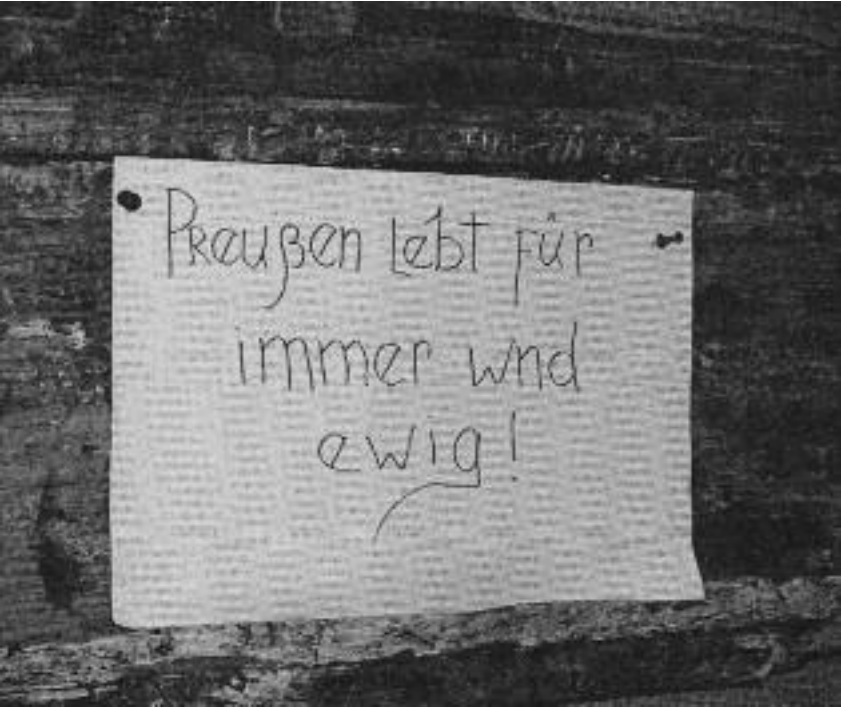 Preußen Lebt für
immer und
ewig!